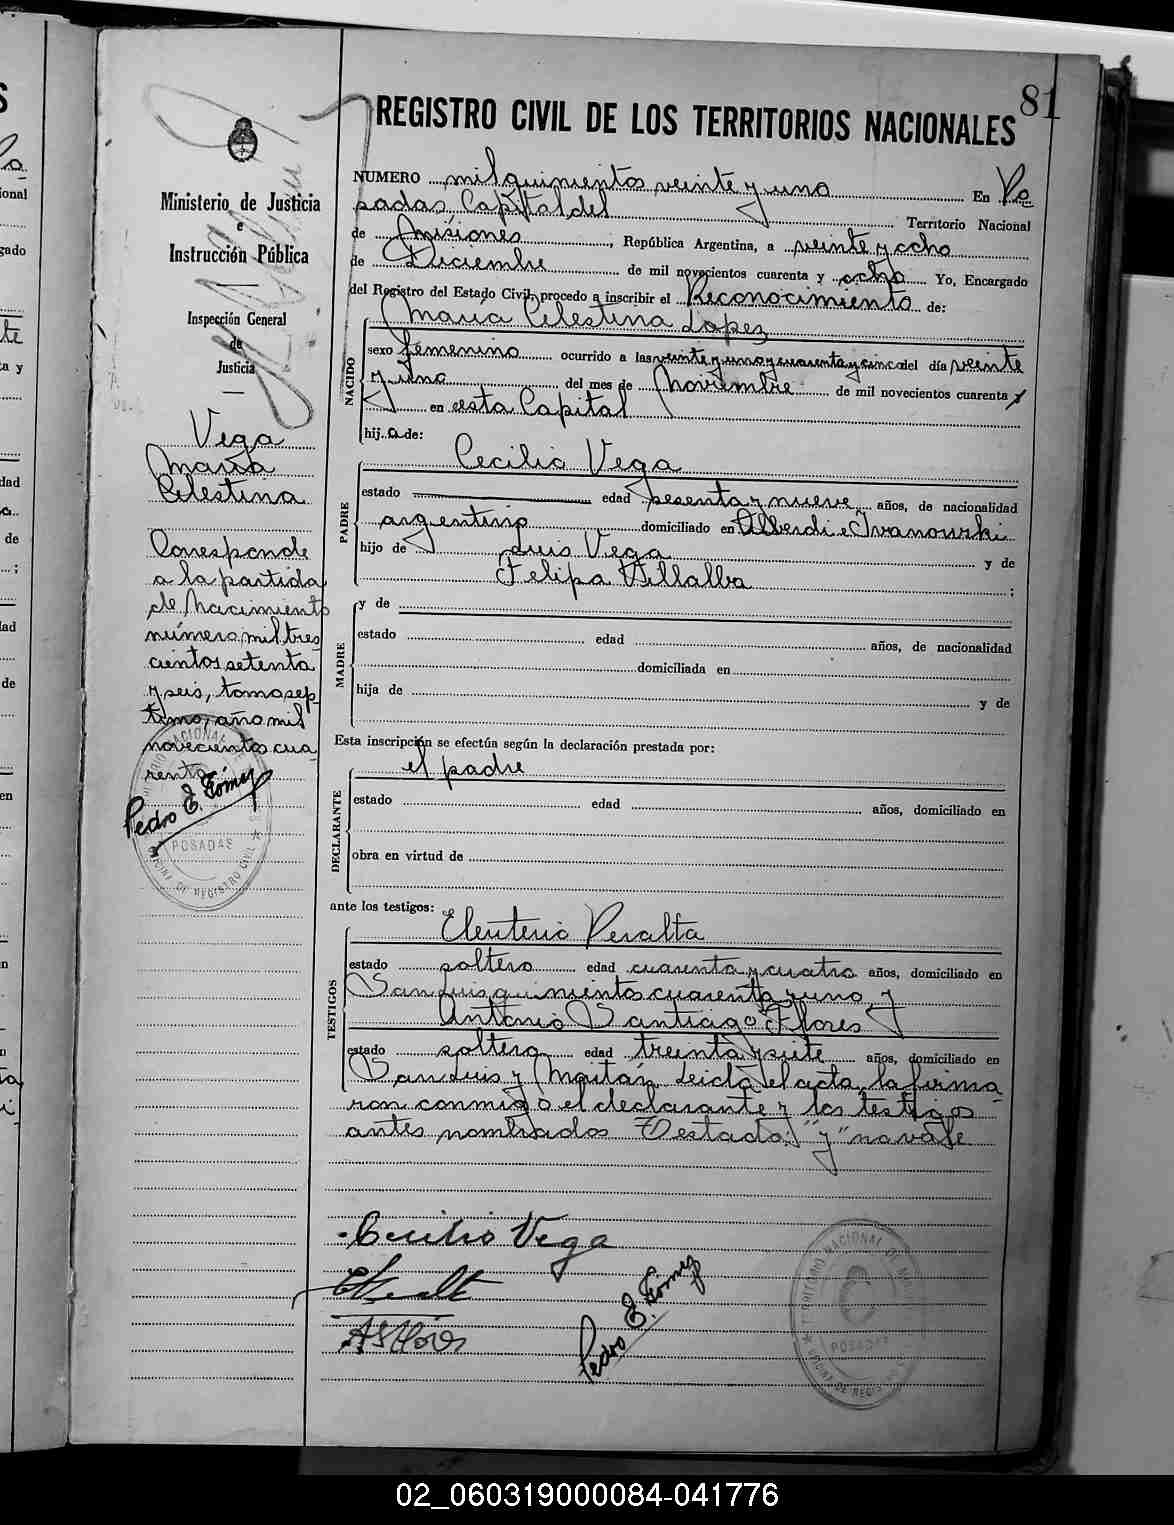 81
REGISTRO CIVIL DE LOS TERRITORIOS NACIONALES
Ministerio de Justicia
e
Instrucción Pública
Inspección General
de
Justicia
Vega
Maria
Celestina
Corresponde
a la partida
de Nacimiento
número mil tres
cientos setenta
y seis, tomo sep
timo, año mil
novecientos cua
renta
Pedro E. Gómez
POSADAS
OFICINA DE REGISTRO CIVIL
NUMERO mil quinientos veinte y uno En Po
sadas Capital del Territorio Nacional
de Misiones, República Argentina, a veinte y ocho
de Diciembre de mil novecientos cuarenta y ocho Yo, Encargado
del Registro del Estado Civil, procedo a inscribir el Reconocimiento de:
Maria Celestina Lopez
NACIDO
sexo femenino ocurrido a las veinte y uno y cuarenta y cinco del día veinte
y uno del mes de Noviembre de mil novecientos cuarenta y
en esta Capital
hij a de:
Cecilio Vega
PADRE
estado edad sesenta y nueve años, de nacionalidad
argentino domiciliado en Alberdi e Ivanowski
hijo de Luis Vega y de
Felipa Villalba ;
MADRE
y de
estado edad años, de nacionalidad
domiciliada en
hija de y de
Esta inscripción se efectúa según la declaración prestada por:
el padre
DECLARANTE
estado edad años, domiciliado en
obra en virtud de
ante los testigos:
Eleuterio Peralta
TESTIGOS
estado soltero edad cuarenta y cuatro años, domiciliado en
San Luis quinientos cuarenta y uno, y
Antonio Santiago Flores
estado soltero edad treinta y siete años, domiciliado en
San Luis y Maitán Leida el acta, la firma
ron conmigo el declarante y los testigos
antes nombrados Testado: "y" no vale
Cecilio Vega
Pedro E. Gómez
TERRITORIO NACIONAL DE
POSADAS
OFICINA DE REGISTRO C
02_060319000084-041776